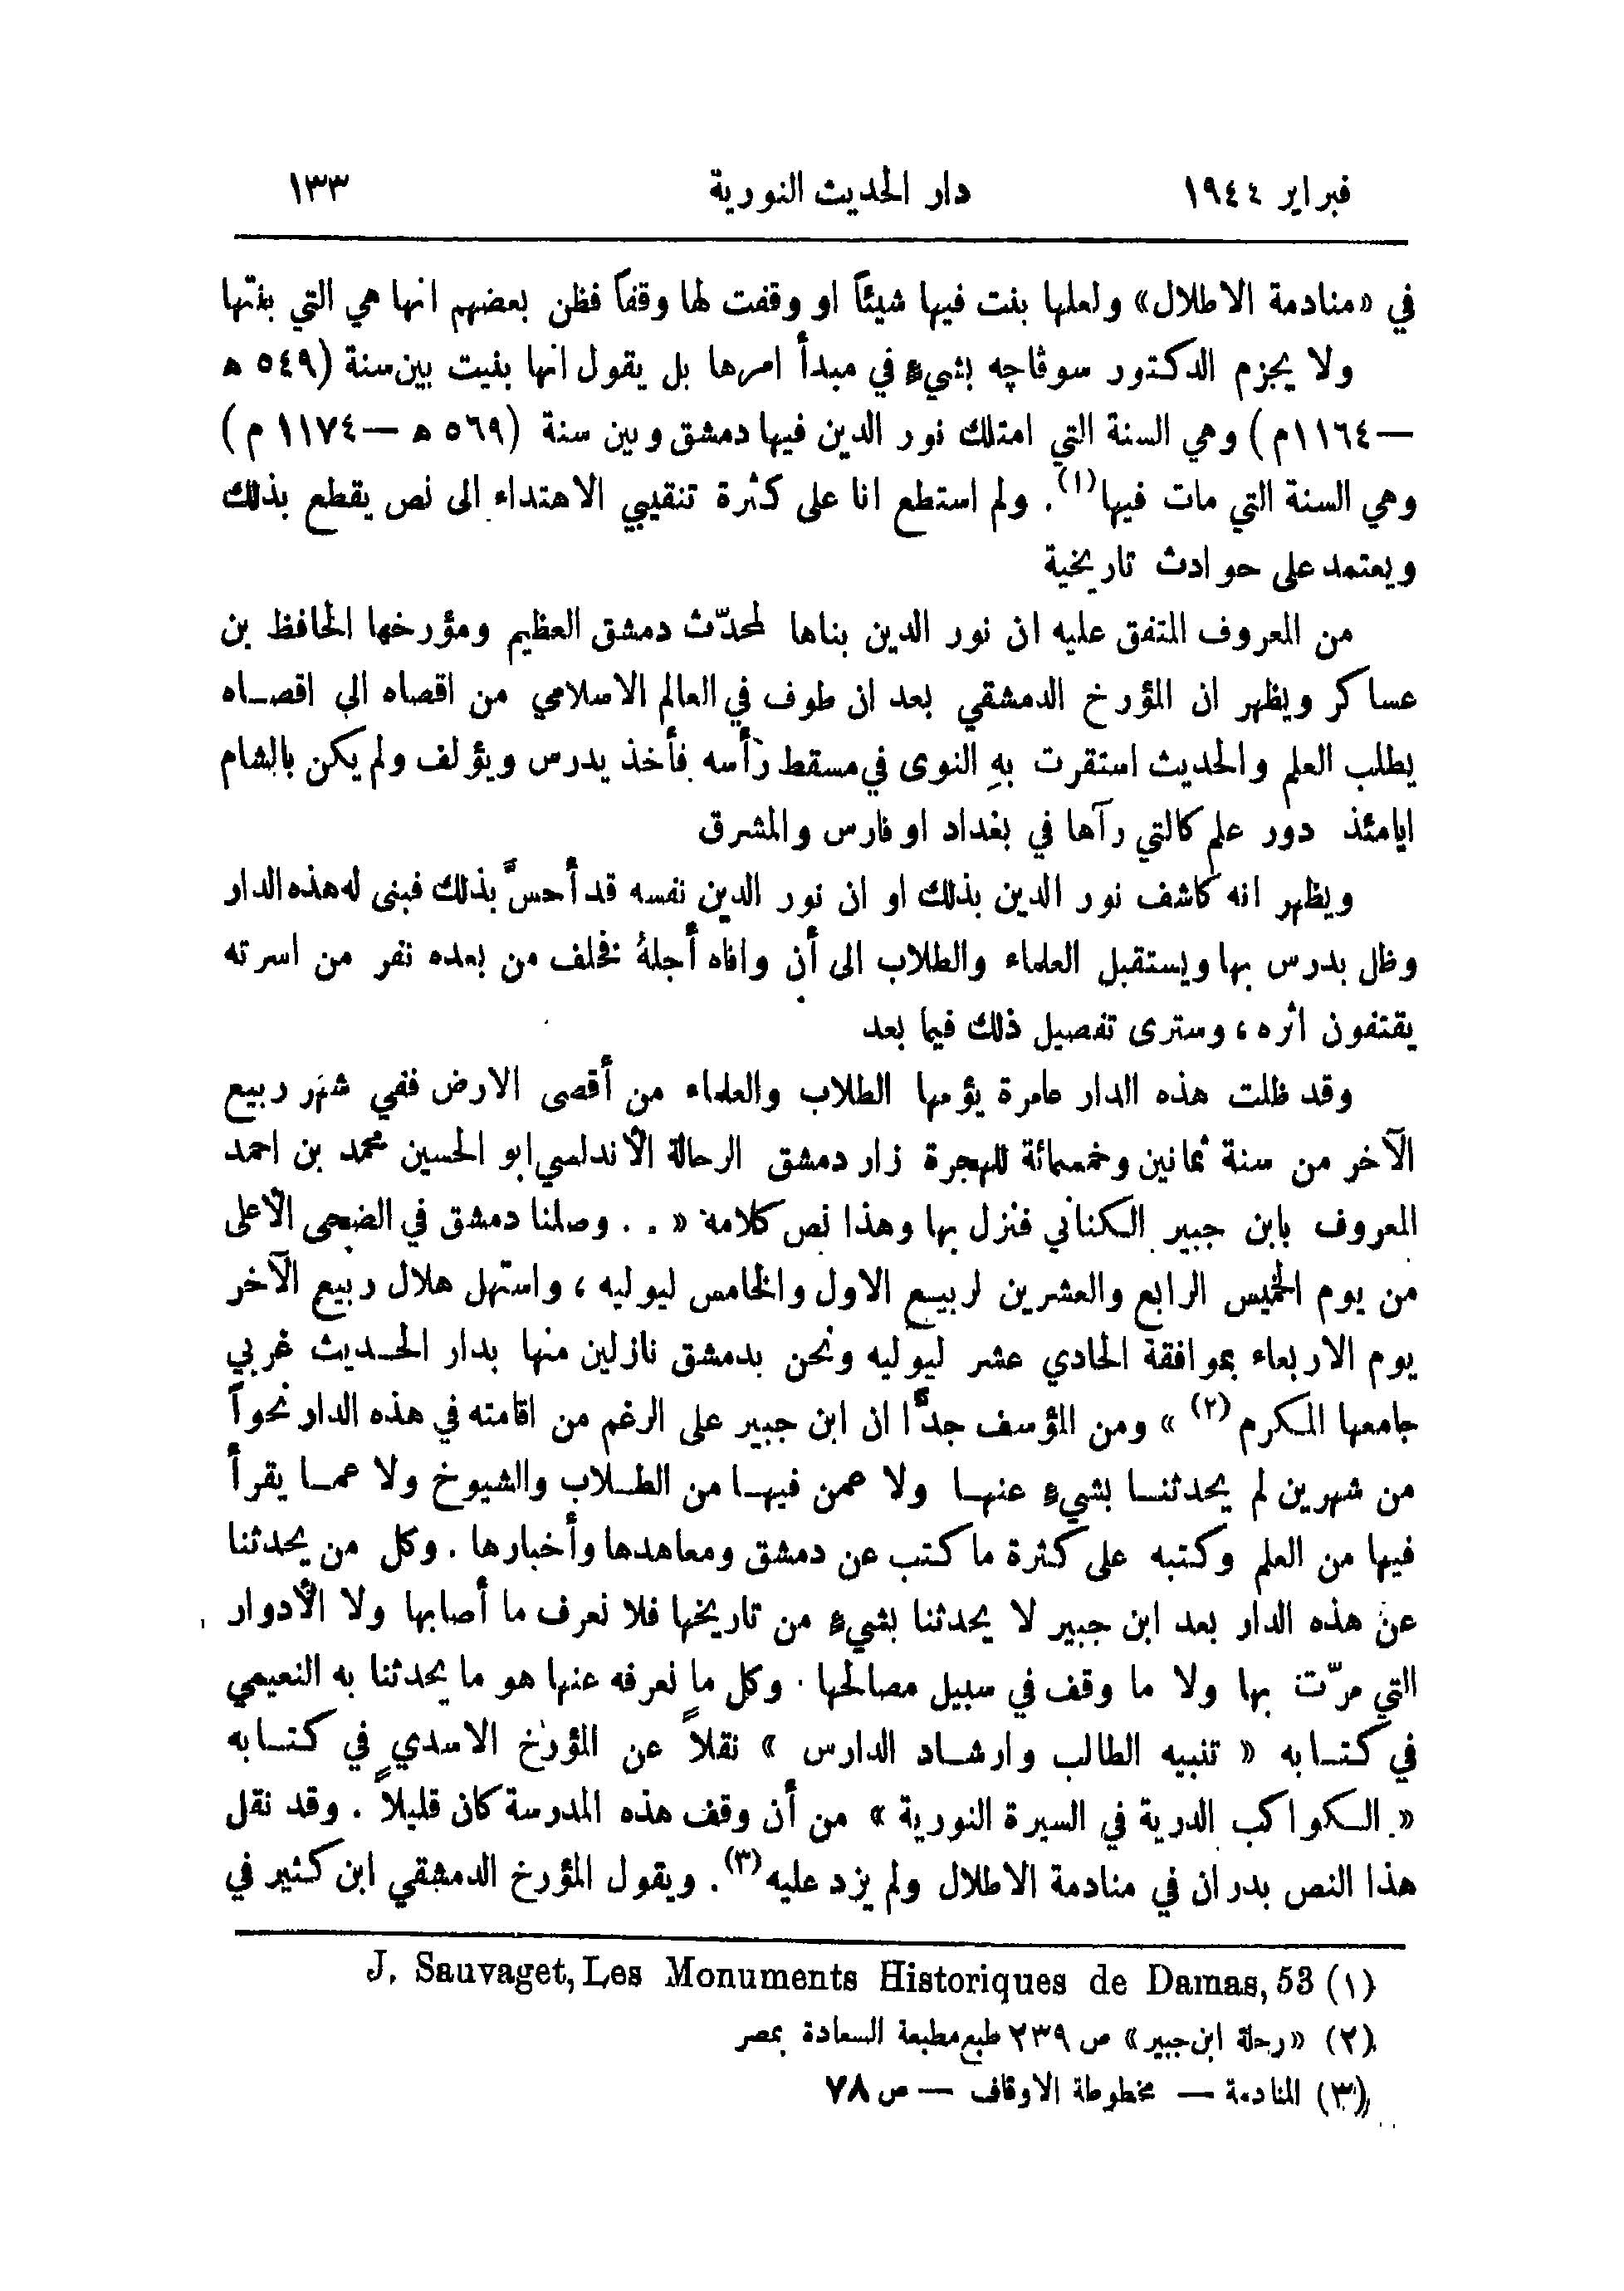 فبراير ١٩٤٤ دار الحديث النورية ١٣٣
في «منادمة الاطلال» ولعلها بنت فيها شيئاً او وقفت لها وقفاً فظن بعضهم انها هي التي بنتها
ولا يجزم الدكتور سوڤاچه بشيءٍ في مبدأ امرها بل يقول انها بنيت بين سنة (٥٤٩ ه
— ١١٦٤م) وهي السنة التي امتلك نور الدين فيها دمشق وبين سنة (٥٦٩ ه — ١١٧٤ م)
وهي السنة التي مات فيها(١). ولم استطع انا على كثرة تنقيبي الاهتداء الى نص يقطع بذلك
ويعتمد على حوادث تاريخية
من المعروف المتفق عليه ان نور الدين بناها لمحدّث دمشق العظيم ومؤرخها الحافظ بن
عساكر ويظهر ان المؤرخ الدمشقي بعد ان طوف في العالم الاسلامي من اقصاه الى اقصاه
يطلب العلم والحديث استقرت بهِ النوى في مسقط رأسه فأخذ يدرس ويؤلف ولم يكن بالشام
ايامئذ دور علم كالتي رآها في بغداد او فارس والمشرق
ويظهر انه كاشف نور الدين بذلك او ان نور الدين نفسه قد أحسَّ بذلك فبنى له هذه الدار
وظل يدرس بها ويستقبل العلماء والطلاب الى أن وافاه أجلهُ فخلف من بعده نفر من اسرته
يقتفون اثره ، وسترى تفصيل ذلك فيما بعد
وقد ظلت هذه الدار عامرة يؤمها الطلاب والعلماء من أقصى الارض ففي شهر ربيع
الآخر من سنة ثمانين وخمسمائة للهجرة زار دمشق الرحالة الأندلسي ابو الحسين محمد بن احمد
المعروف بابن جبير الكناني فنزل بها وهذا نص كلامه « . . وصلنا دمشق في الضحى الأعلى
من يوم الخميس الرابع والعشرين لربيع الاول والخامس ليوليه ، واستهل هلال ربيع الآخر
يوم الاربعاء بموافقة الحادي عشر ليوليه ونحن بدمشق نازلين منها بدار الحديث غربي
جامعها المكرم(٢) » ومن المؤسف جدًّا ان ابن جبير على الرغم من اقامته في هذه الدار نحواً
من شهرين لم يحدثنا بشيءٍ عنها ولا عمن فيها من الطلاب والشيوخ ولا عما يقرأ
فيها من العلم وكتبه على كثرة ما كتب عن دمشق ومعاهدها وأخبارها . وكل من يحدثنا
عن هذه الدار بعد ابن جبير لا يحدثنا بشيءٍ من تاريخها فلا نعرف ما أصابها ولا الأدوار
التي مرّت بها ولا ما وقف في سبيل مصالحها . وكل ما نعرفه عنها هو ما يحدثنا به النعيمي
في كتابه « تنبيه الطالب وارشاد الدارس » نقلاً عن المؤرخ الاسدي في كتابه
« الكواكب الدرية في السيرة النورية » من أن وقف هذه المدرسة كان قليلاً . وقد نقل
هذا النص بدران في منادمة الاطلال ولم يزد عليه(٣). ويقول المؤرخ الدمشقي ابن كثير في
(١) J. Sauvaget, Les Monuments Historiques de Damas, 53
(٢) «رحلة ابن جبير» ص ٢٣٩ طبع مطبعة السعادة بمصر
(٣) المنادمة — مخطوطة الاوقاف — ص ٧٨